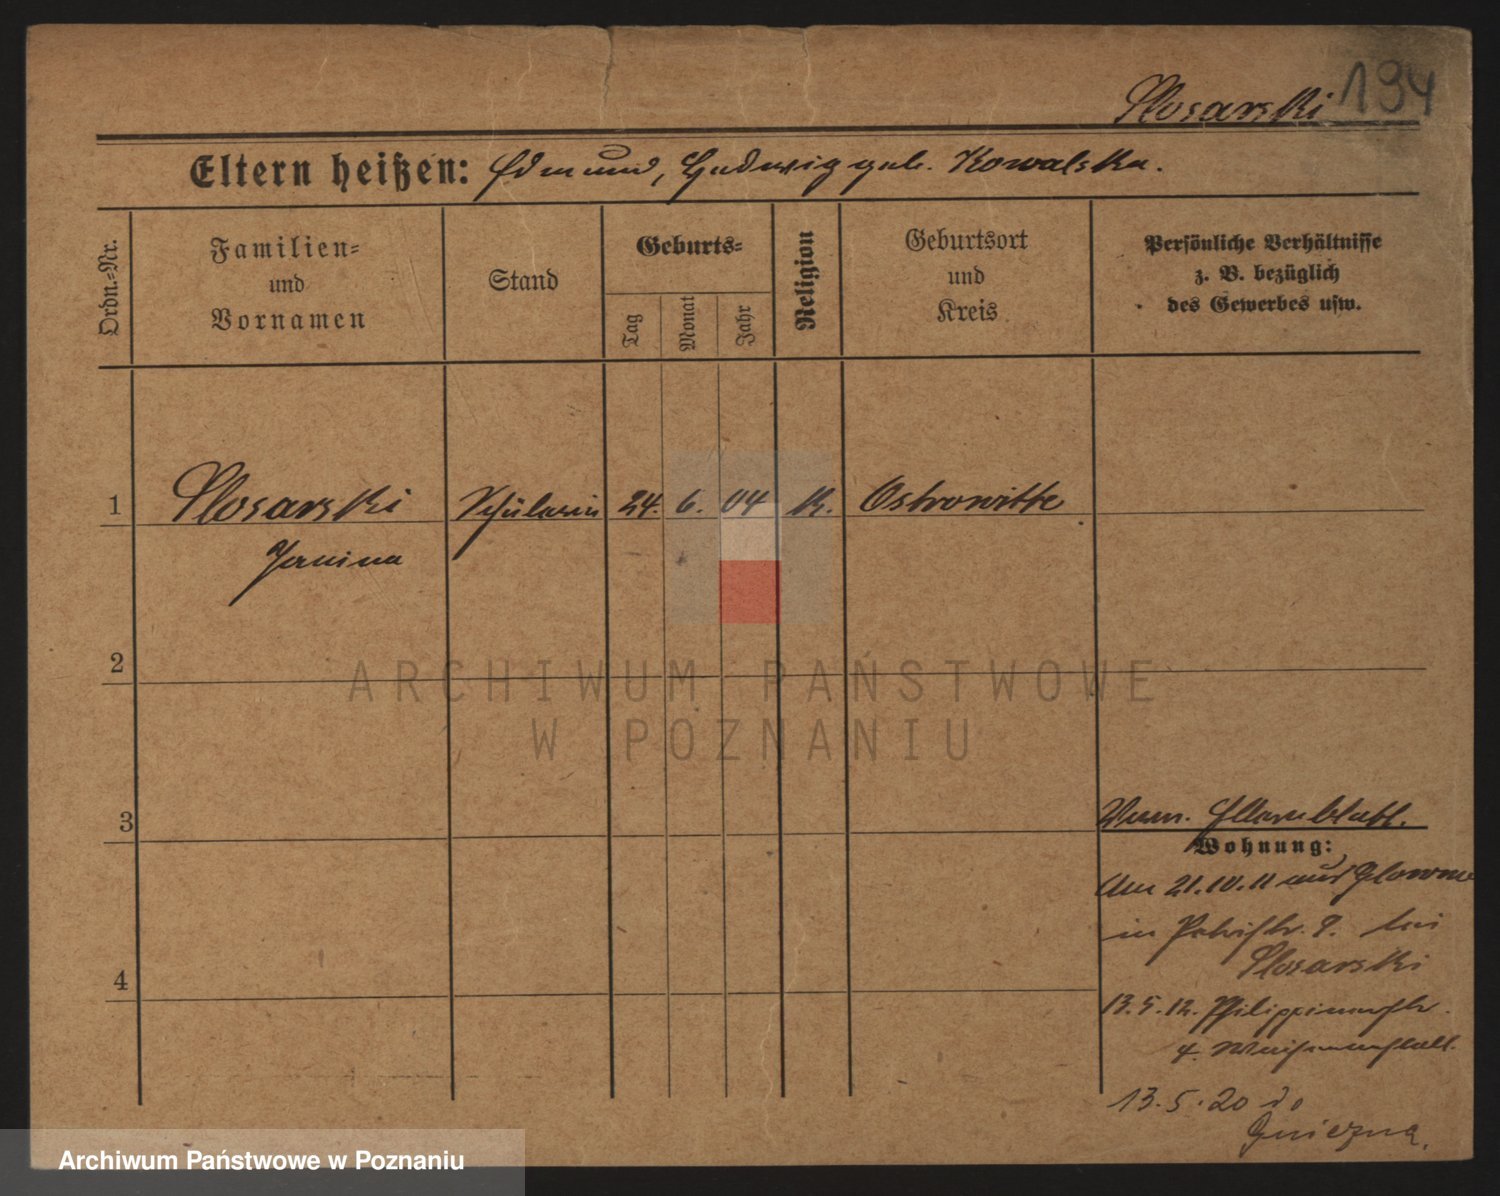 Slosarski 194
Eltern heißen: Edmund, Hedwig geb. Kowalska.
Ordn.-Nr.
Familien-
und
Vornamen
Stand
Geburts-
Tag
Monat
Jahr
Religion
Geburtsort
und
Kreis
Persönliche Verhältnisse
z. B. bezüglich
des Gewerbes usw.
1 Slosarski Schülerin 24. 6. 04 k. Ostrowitte
Janina
2
ARCHIWUM PAŃSTWOWE
W POZNANIU
3
Elternblatt.
Wohnung:
Am 21.10.11 aus Glowno
in Petristr. 8. bei
Slosarski
4
13.5.12. Philippinenstr.
4. Waisenanstalt.
13.5.20 do
Gniezna.
Archiwum Państwowe w Poznaniu